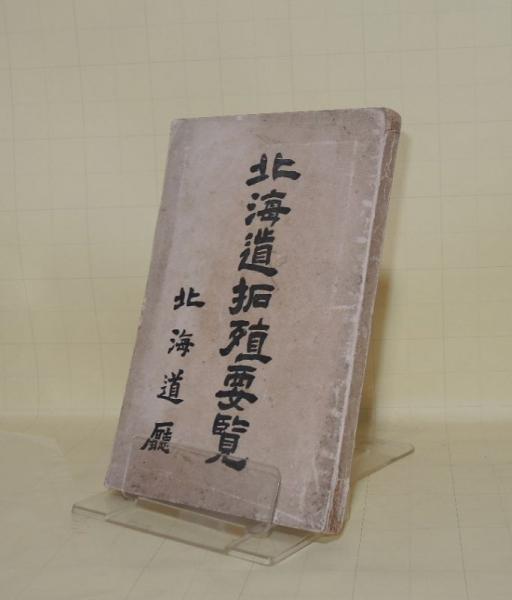 北海道拓殖要覧
北海道廳